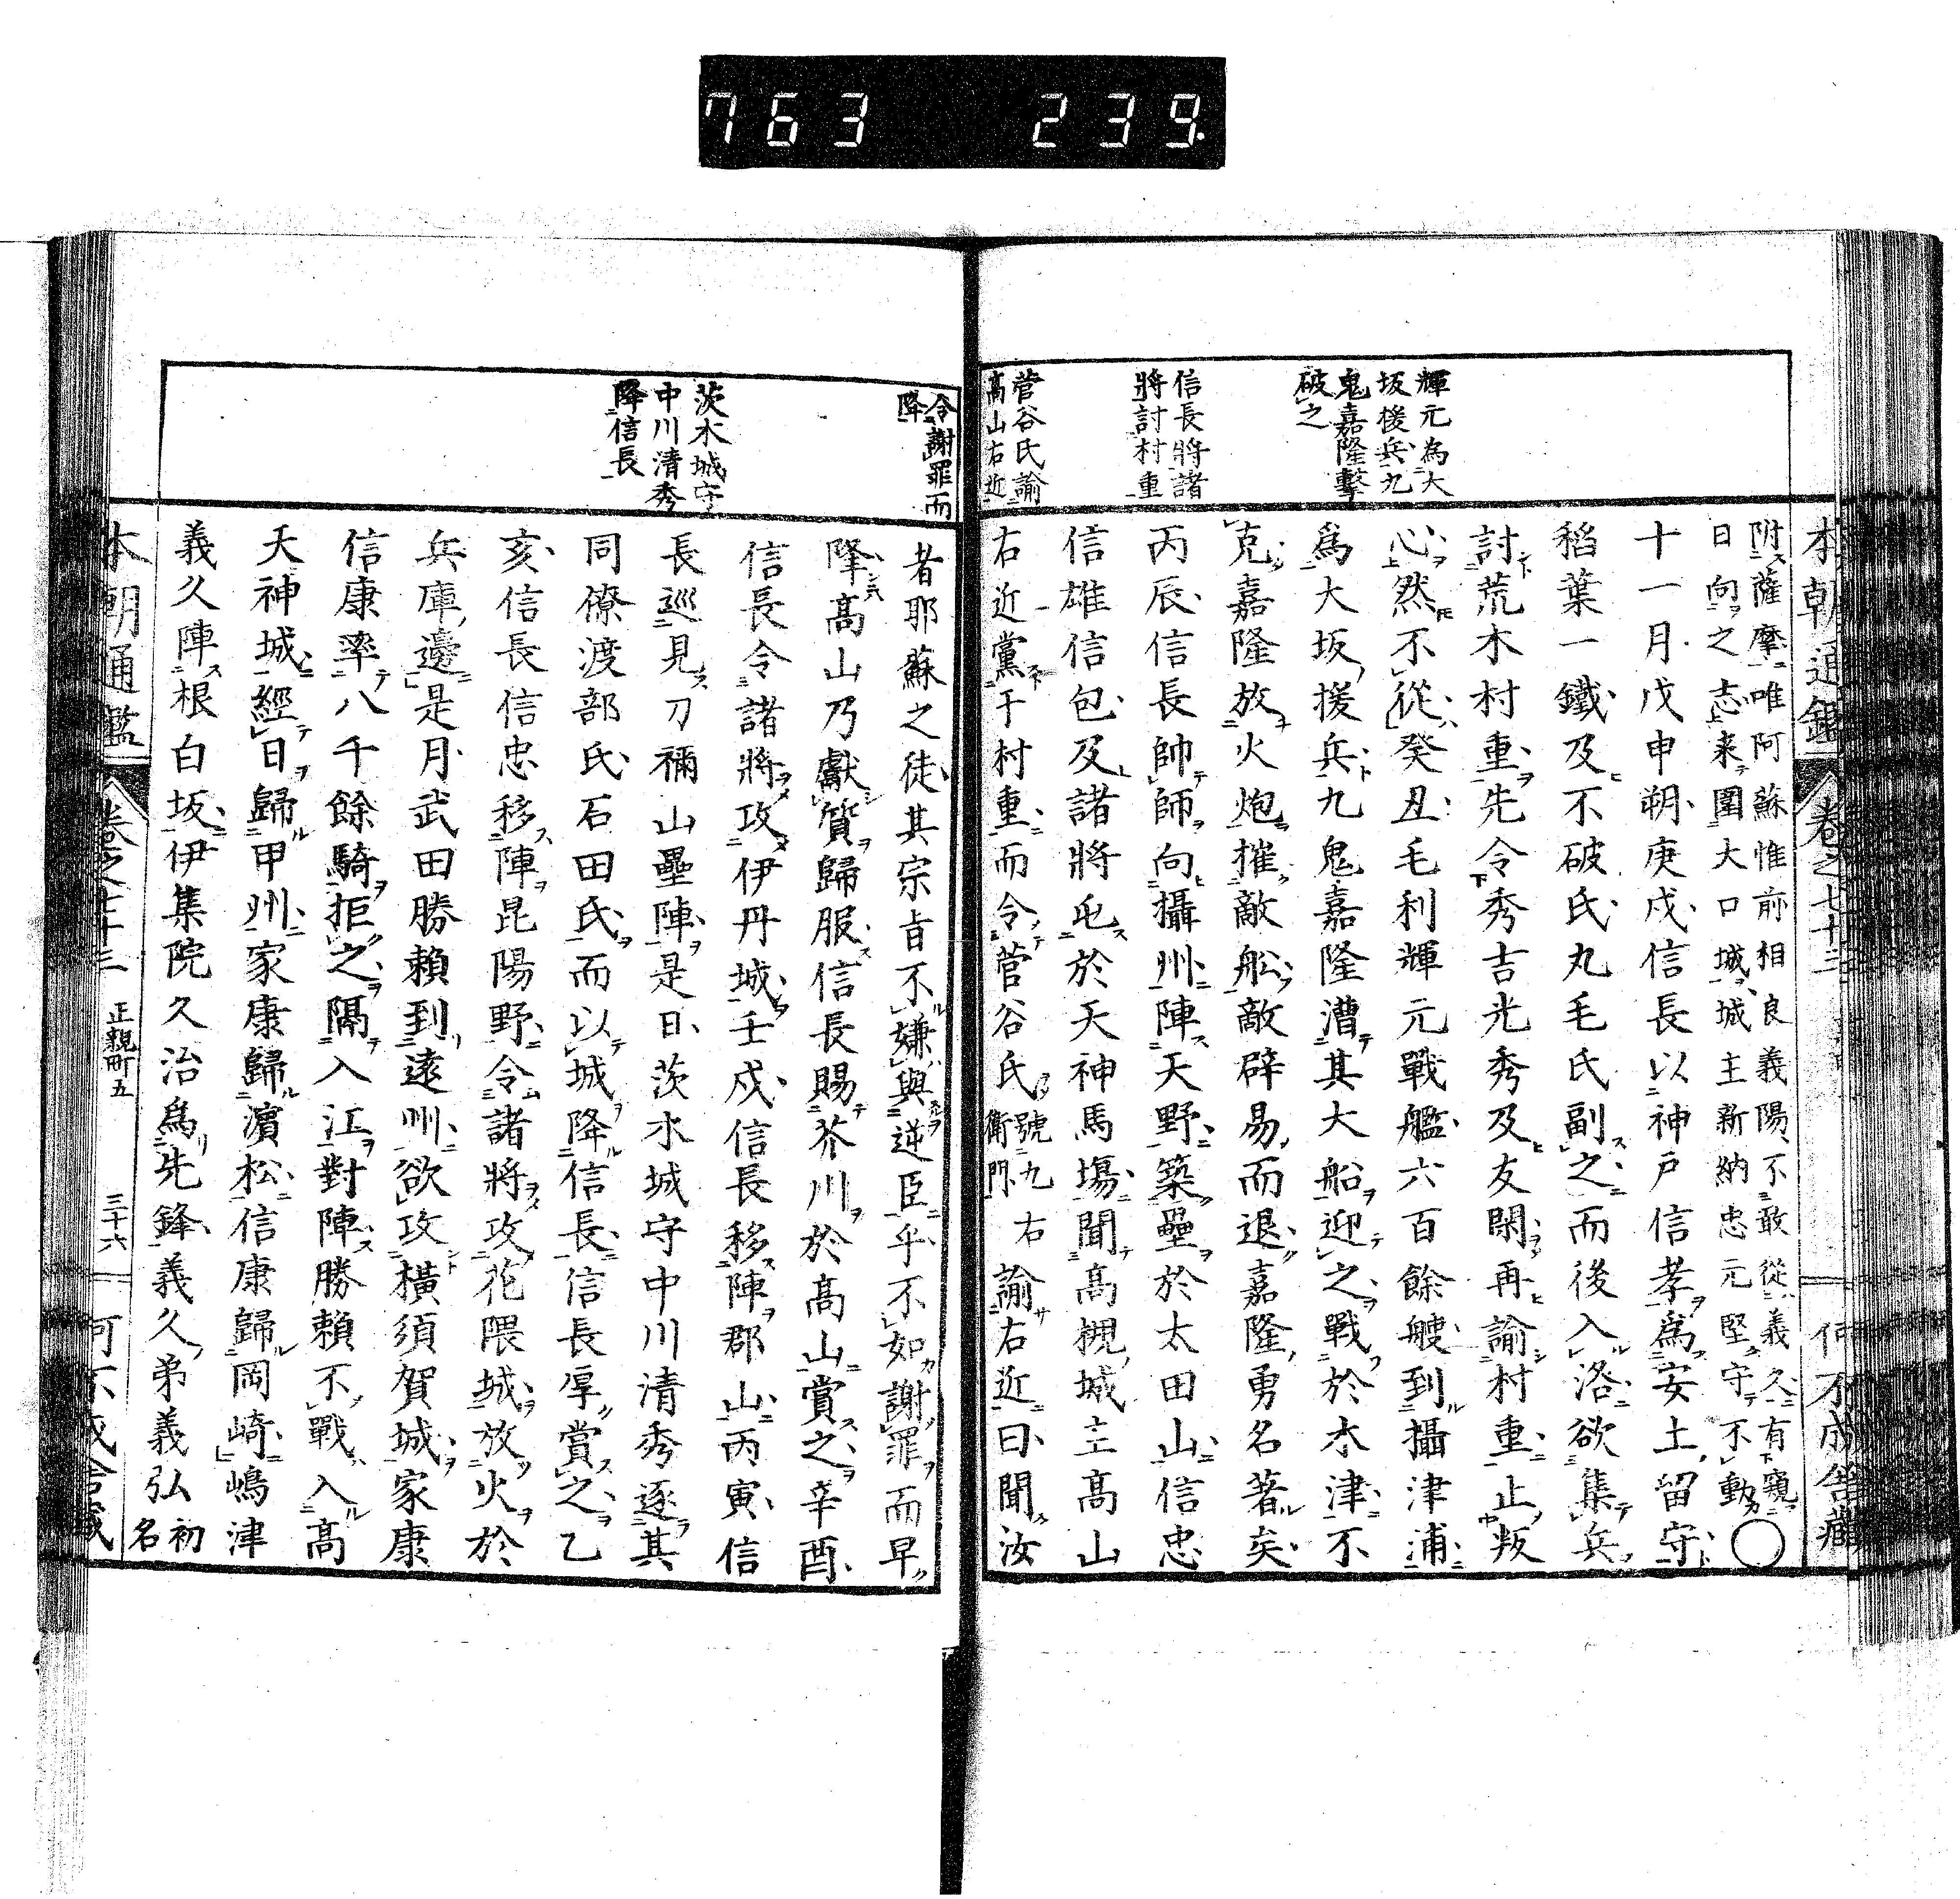 763 239
輝元為大
坂援兵九
鬼嘉隆擊
破之
信長將諸
將討村重
菅谷氏諭
高山右近
附薩摩唯阿蘇惟前相良義陽不敢從義久有窺
日向之志来圍大口城城主新納忠元堅守不動○
十一月戊申朔庚戌信長以神戶信孝爲安土留守
稻葉一鐵及不破氏丸毛氏副之而後入洛欲集兵
討荒木村重先令秀吉光秀及友閑再諭村重止叛
心然不從癸丑毛利輝元戰艦六百餘艘到攝津浦
爲大坂援兵九鬼嘉隆漕其大船迎之戰於木津不
克嘉隆放火炮摧敵船敵辟易而退嘉隆勇名著矣
丙辰信長帥師向攝州陣天野築壘於太田山信忠
信雄信包及諸將屯於天神馬塲聞高槻城主高山
右近黨于村重而令菅谷氏號九右衛門諭右近曰聞汝
令謝罪而
降
茨木城守
中川清秀
降信長
者耶蘇之徒其宗旨不嫌與逆臣乎不如謝罪而早
降高山乃獻質歸服信長賜芥川於高山賞之辛酉
信長令諸將攻伊丹城壬戌信長移陣郡山丙寅信
長巡見刀禰山壘陣是日茨木城守中川清秀逐其
同僚渡部氏石田氏而以城降信長信長厚賞之乙
亥信長信忠移陣昆陽野令諸將攻花隈城放火於
兵庫邊是月武田勝賴到遠州欲攻橫須賀城家康
信康率八千餘騎拒之隔入江對陣勝賴不戰入高
天神城經日歸甲州家康歸濵松信康歸岡崎嶋津
義久陣根白坂伊集院久治爲先鋒義久弟義弘初名
本朝通鑑 卷之七十三 正親町五 三十六